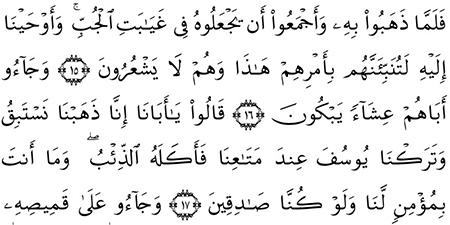 فَلَمَّا ذَهَبُوا۟ بِهِۦ وَأَجْمَعُوٓا۟ أَن يَجْعَلُوهُ فِى غَيَـٰبَتِ ٱلْجُبِّ ۚ وَأَوْحَيْنَآ
إِلَيْهِ لَتُنَبِّئَنَّهُم بِأَمْرِهِمْ هَـٰذَا وَهُمْ لَا يَشْعُرُونَ ١٥ وَجَآءُو
أَبَاهُمْ عِشَآءً يَبْكُونَ ١٦ قَالُوا۟ يَـٰٓأَبَانَآ إِنَّا ذَهَبْنَا نَسْتَبِقُ
وَتَرَكْنَا يُوسُفَ عِندَ مَتَـٰعِنَا فَأَكَلَهُ ٱلذِّئْبُ ۖ وَمَآ أَنتَ
بِمُؤْمِنٍ لَّنَا وَلَوْ كُنَّا صَـٰدِقِينَ ١٧ وَجَآءُو عَلَىٰ قَمِيصِهِۦ